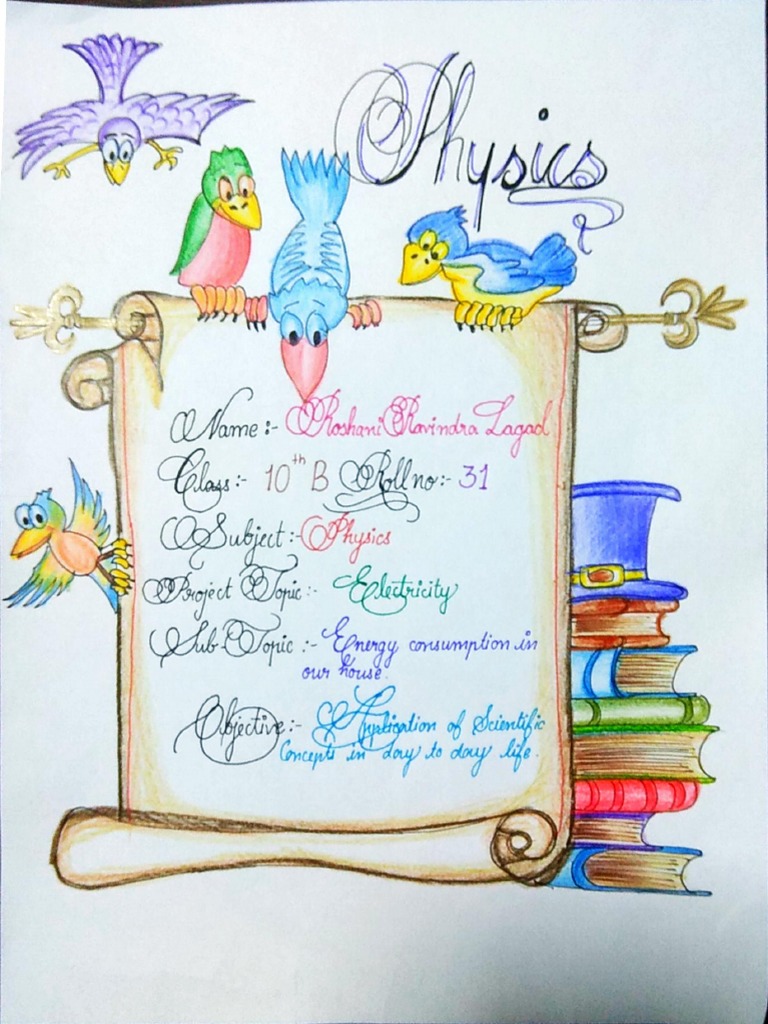 Physics
Name :- Roshani Ravindra Lagad
Class:- 10th B Roll no:- 31
Subject:- Physics
Project Topic:- Electricity
Sub-Topic :- Energy consumption in
our house.
Objective:- Application of Scientific
Concepts in day to day life.